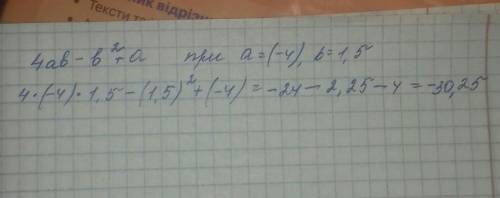 ник відрізк
• Тексти то
4ab - b² + a при a = (-4), b = 1,5
4 · (-4) · 1,5 - (1,5)² + (-4) = -24 - 2,25 - 4 = -30,25